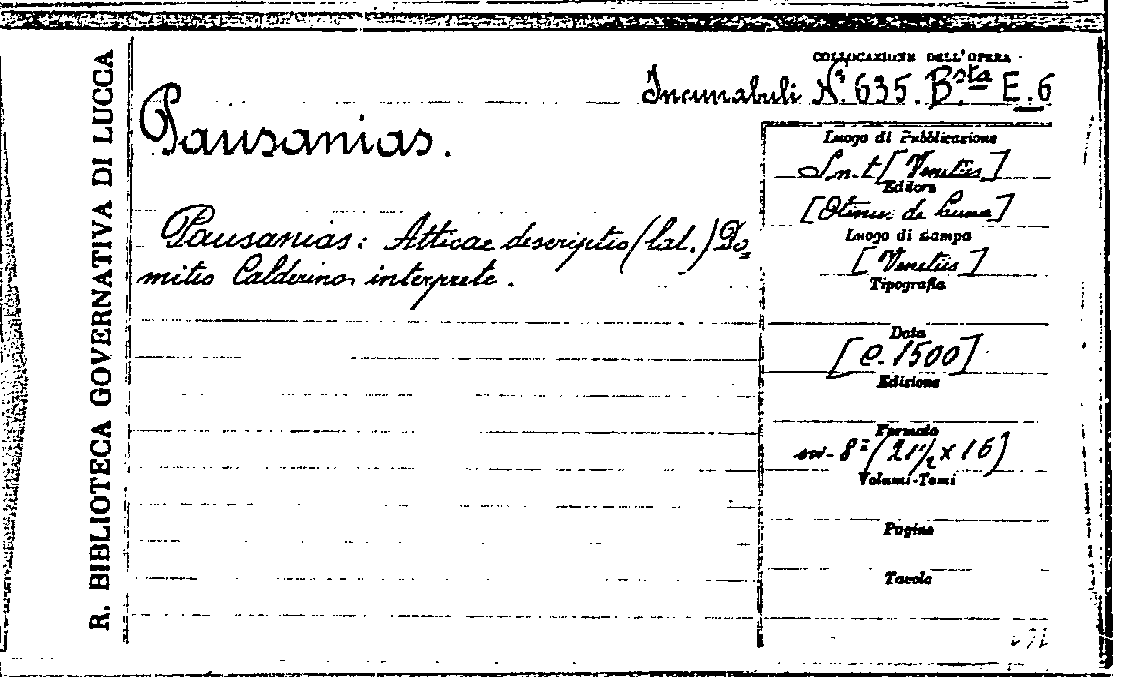 R. BIBLIOTECA GOVERNATIVA DI LUCCA
COLLOCAZIONE DELL'OPERA
Incunabuli N.º 635. B.sta E.6
Pausanias.
Pausanias: Atticae descriptio (lat.) Do-
mitio Calderino interprete.
Luogo di Pubblicazione
S.n.t [Venetiis]
Editore
[Otinus de Luna]
Luogo di Stampa
[Venetiis]
Tipografia
Data
[c. 1500]
Edizione
Formato
in-8º (21 1/2 x 16)
Volumi-Tomi
Pagine
Tavole